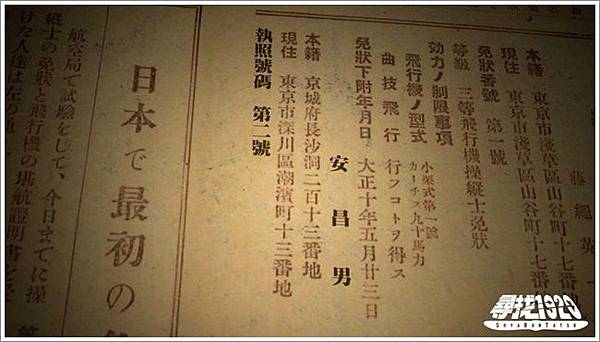 藤 繩 英 一
本籍 東京市淺草區山谷町十七番
現住 東京市淺草區山谷町十七番
免狀番號 第一號
等級 三等飛行機操縱士免狀
効力ノ制限事項
飛行機ノ型式 小栗式第一號
カーチス九十馬力
曲技飛行 行フコトヲ得ス
免狀下附年月日 大正十年五月廿三日
安 昌 男
本籍 京城府長沙洞二百十三番地
現住 東京市深川區潮濱町十三番地
執照號碼 第二號
日本で最初の
航空局で試驗をして、今日までに操
縱士の免狀と飛行機の堪航證明書
けた人達は左の
尋找1920